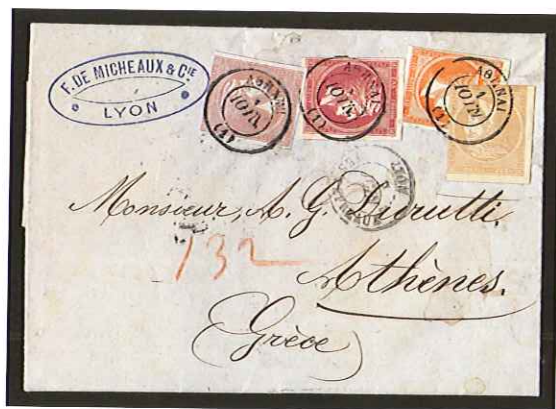 F. DE MICHEAUX & CIE
LYON
ΑΘΗΝΑΙ
1
ΙΟΥΝ
(1)
ΑΘΗΝΑΙ
1
ΙΟΥΝ
(1)
ΑΘΗΝΑΙ
1
ΙΟΥΝ
(1)
LYON
Monsieur, A. G.
132
Athènes.
(Grèce)